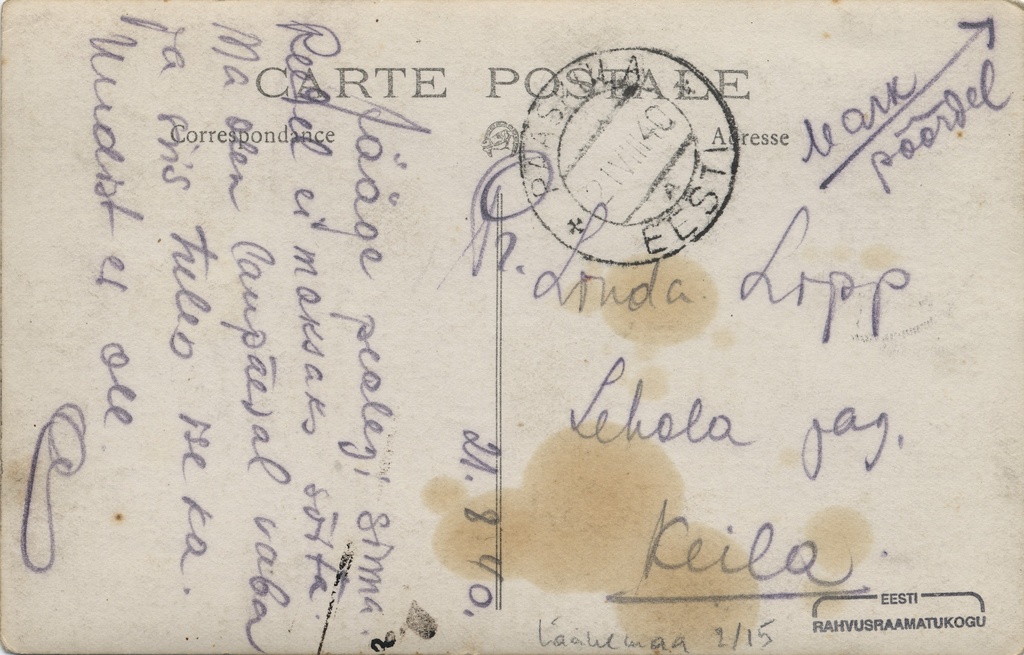 CARTE POSTALE
Correspondance
Adresse
PÄÄSKÜLA
21 VIII 40
EESTI
Mark
pöördel
Jääge pealegi sinna.
Reedel ei maksaks sõita.
Ma olen laupäeval vaba
ja siis tulen ise ka.
Uudist ei ole.
21. 8 40.
Pr. Linda Lipp
Lehola jag.
Keila.
Läänemaa 2/15
EESTI
RAHVUSRAAMATUKOGU